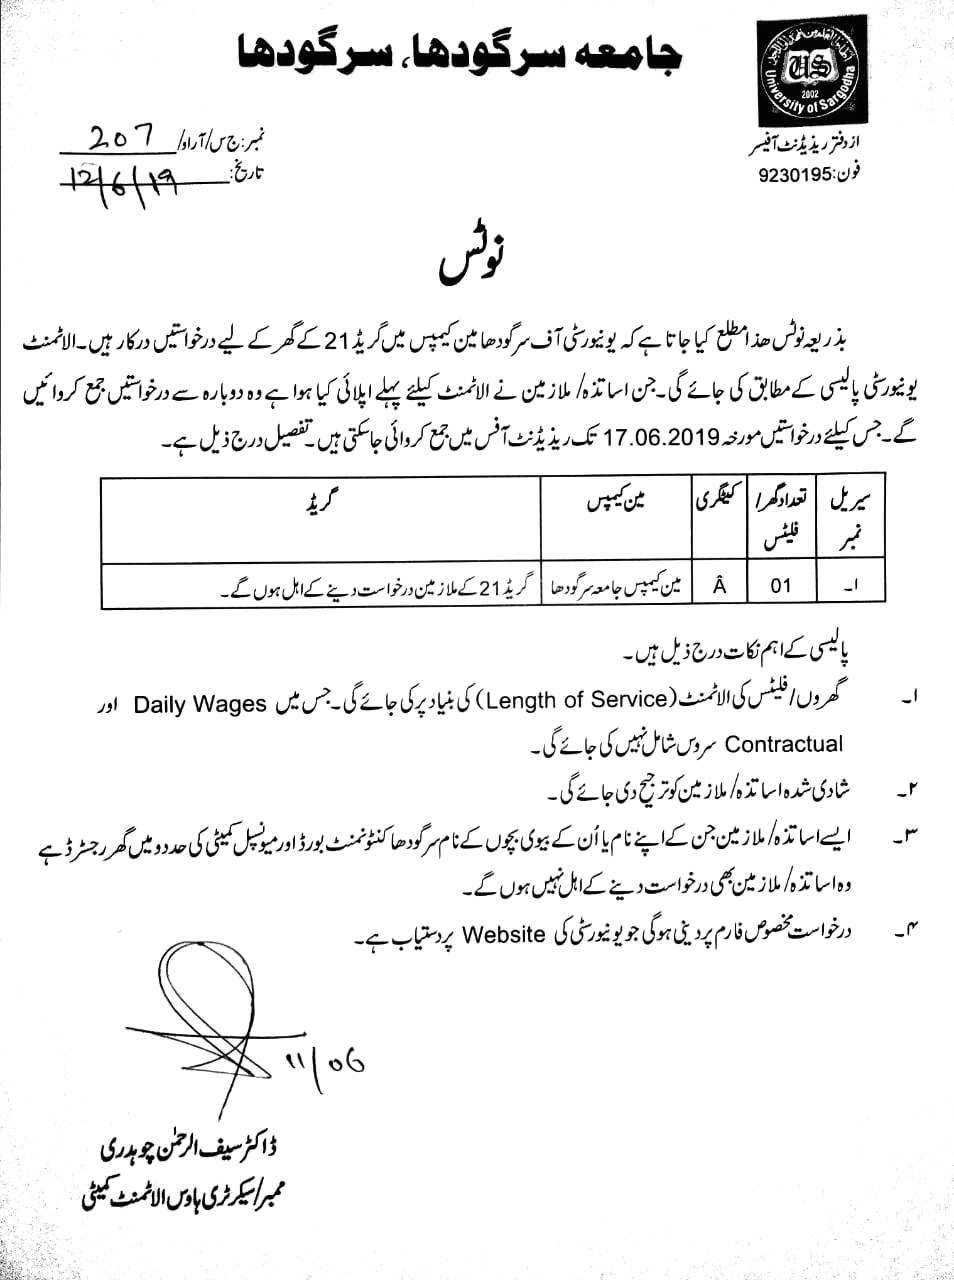 جامعہ سرگودھا، سرگودھا
US
2002
University of Sargodha
از دفتر ریذیڈنٹ آفیسر
فون: 9230195
نمبر: ج س/آراو/ 207
تاریخ: 12/6/19
نوٹس
بذریعہ نوٹس ھذا مطلع کیا جاتا ہے کہ یونیورسٹی آف سرگودھا مین کیمپس میں گریڈ 21 کے گھر کے لیے درخواستیں درکار ہیں۔ الاٹمنٹ
یونیورسٹی پالیسی کے مطابق کی جائے گی۔ جن اساتذہ/ ملازمین نے الاٹمنٹ کیلئے پہلے اپلائی کیا ہوا ہے وہ دوبارہ سے درخواستیں جمع کروائیں
گے۔ جس کیلئے درخواستیں مورخہ 17.06.2019 تک ریذیڈنٹ آفس میں جمع کروائی جاسکتی ہیں۔ تفصیل درج ذیل ہے۔
سیریل نمبر تعداد گھر/ فلیٹس کیٹگری مین کیمپس گریڈ
۱۔ 01 Â مین کیمپس جامعہ سرگودھا گریڈ 21 کے ملازمین درخواست دینے کے اہل ہوں گے۔
پالیسی کے اہم نکات درج ذیل ہیں۔
۱۔ گھروں/ فلیٹس کی الاٹمنٹ (Length of Service) کی بنیاد پر کی جائے گی۔ جس میں Daily Wages اور
Contractual سروس شامل نہیں کی جائے گی۔
۲۔ شادی شدہ اساتذہ/ ملازمین کو ترجیح دی جائے گی۔
۳۔ ایسے اساتذہ/ ملازمین جن کے اپنے نام یا اُن کے بیوی بچوں کے نام سرگودھا کنٹونمنٹ بورڈ اور میونسپل کمیٹی کی حدود میں گھر رجسٹرڈ ہے
وہ اساتذہ/ ملازمین بھی درخواست دینے کے اہل نہیں ہوں گے۔
۴۔ درخواست مخصوص فارم پر دینی ہوگی جو یونیورسٹی کی Website پر دستیاب ہے۔
11/06
ڈاکٹر سیف الرحمٰن چوہدری
ممبر/سیکرٹری ہاوس الاٹمنٹ کمیٹی